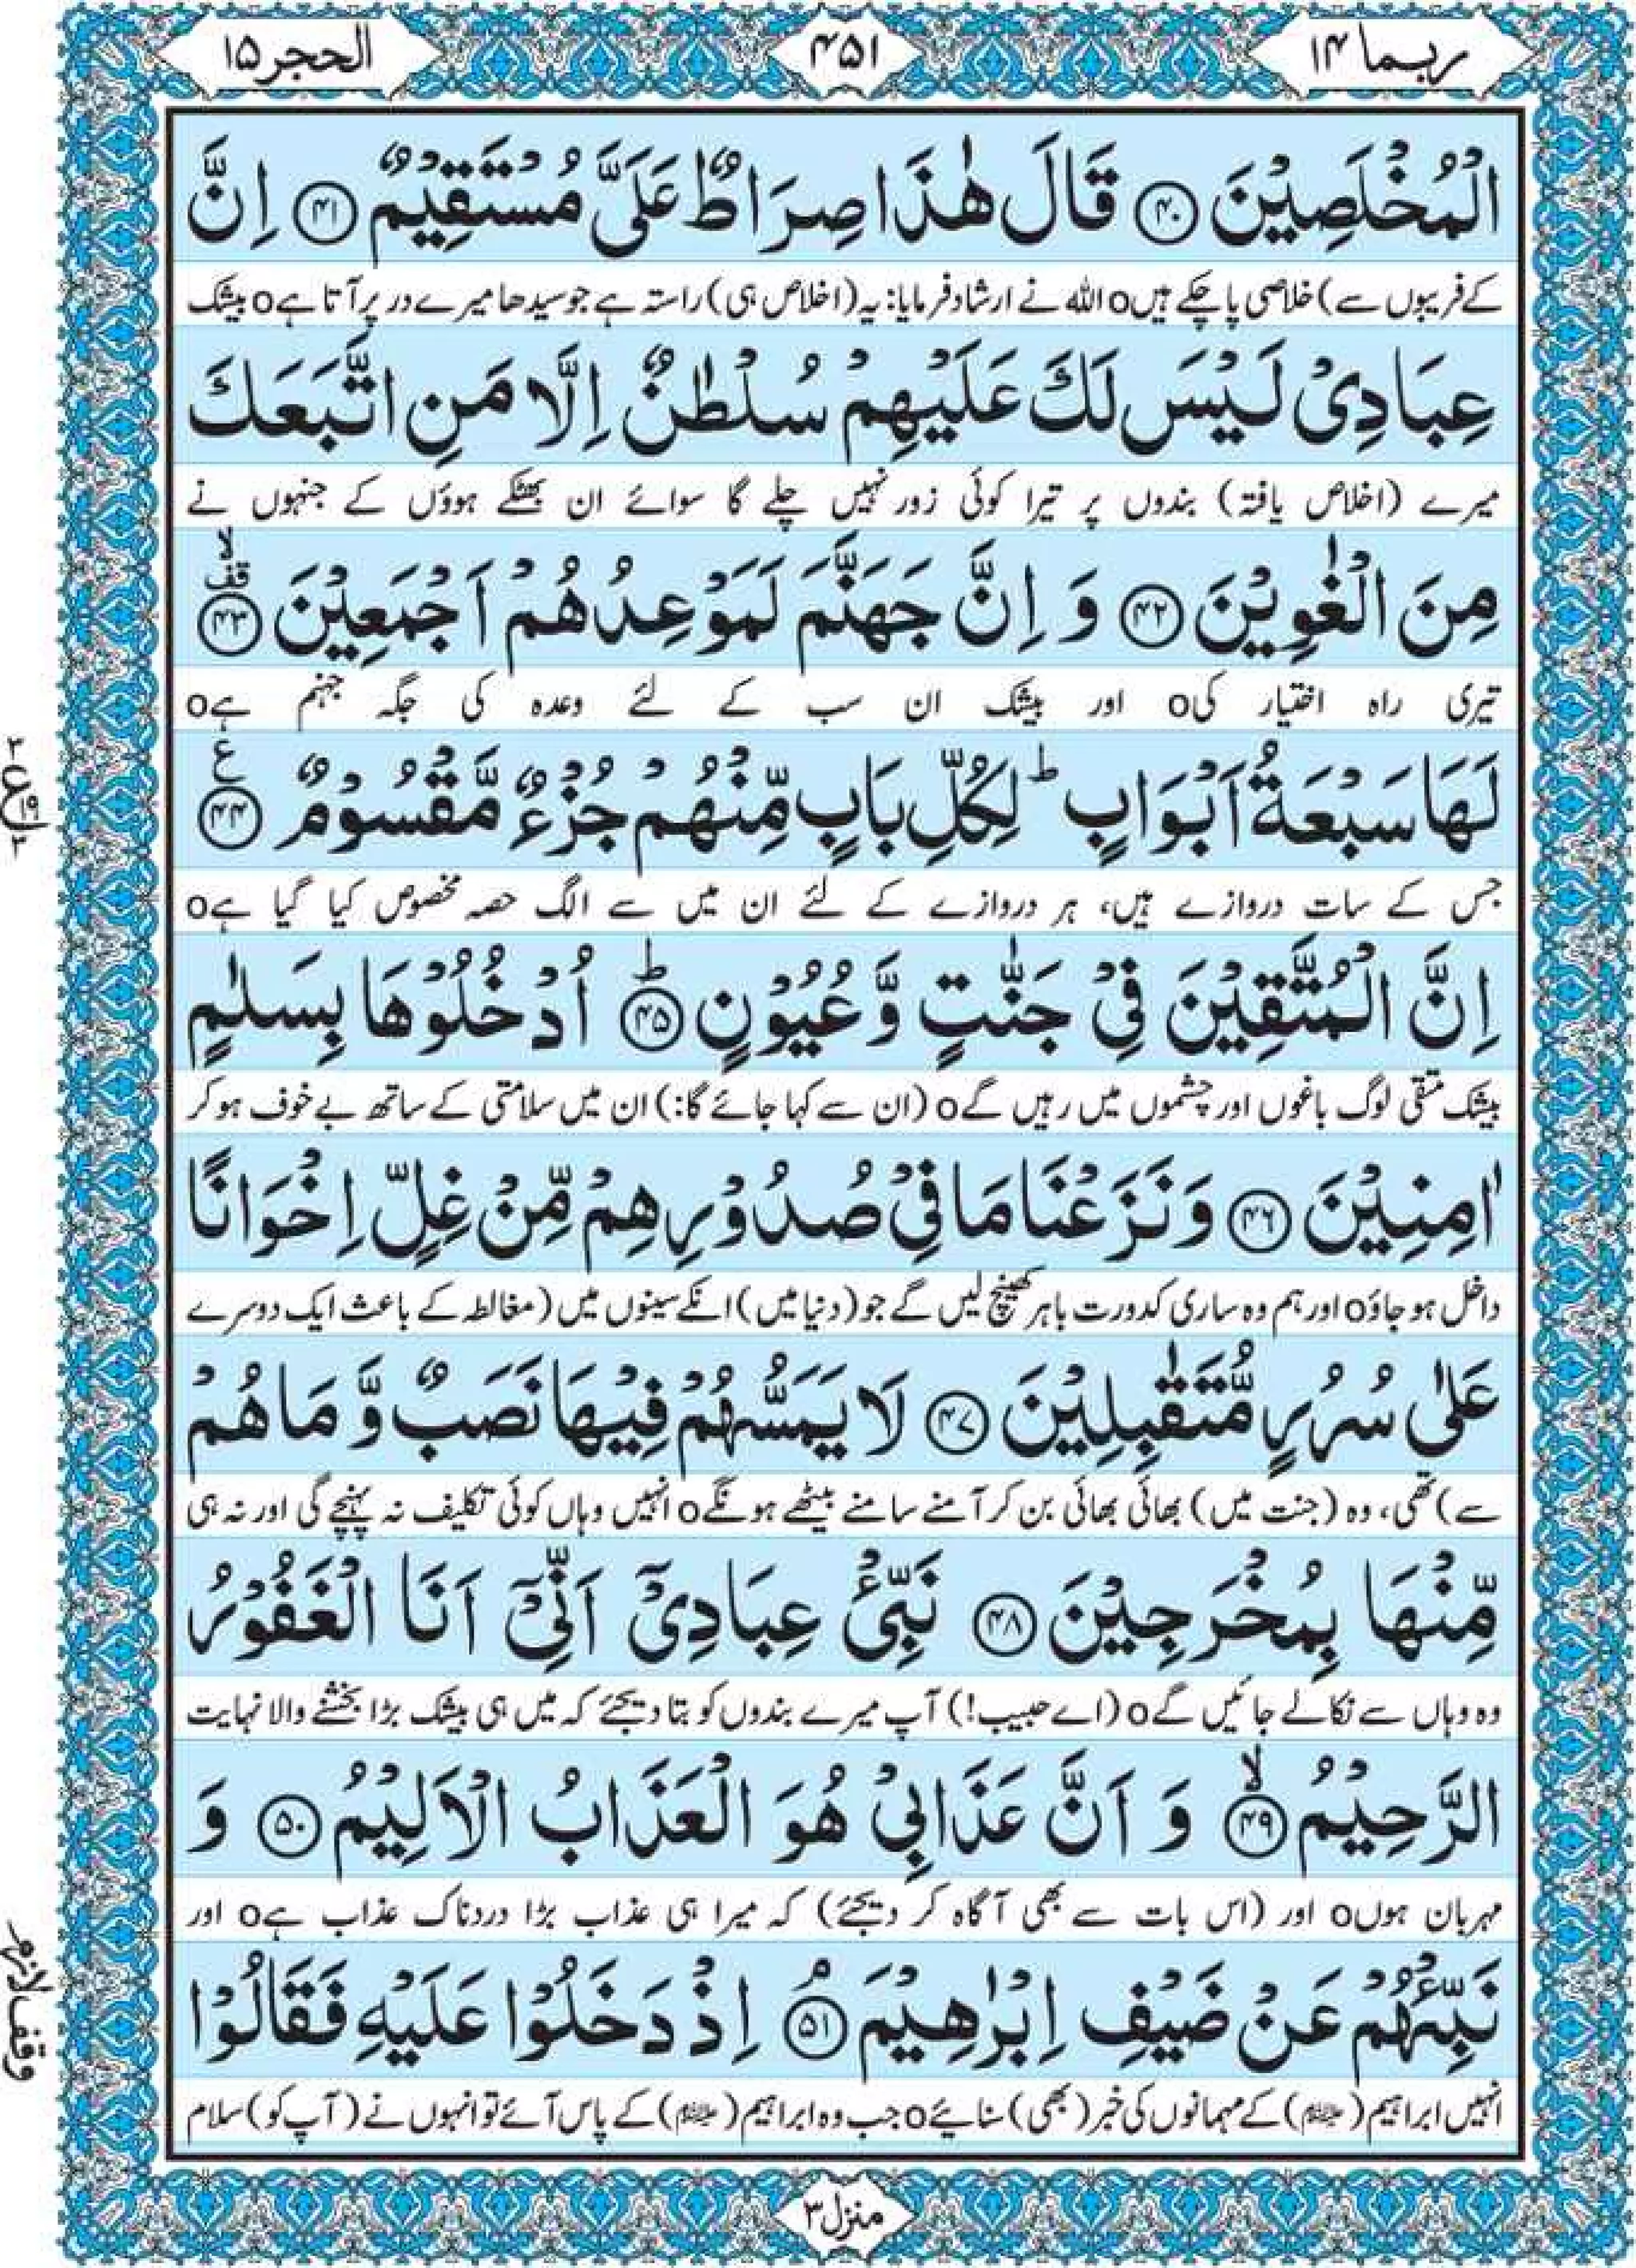 ربما ١۴
۴۵۱
الحجر ١۵
الْمُخْلَصِیْنَ ﴿۴۰﴾ قَالَ هٰذَا صِرَاطٌ عَلَیَّ مُسْتَقِیْمٌ ﴿۴۱﴾ اِنَّ
کے فریبوں سے) خلاصی پا چکے ہیںo اللہ نے ارشاد فرمایا: یہ (اخلاص ہی) راستہ ہے جو سیدھا میرے در پر آتا ہےo بیشک
عِبَادِیْ لَیْسَ لَكَ عَلَیْهِمْ سُلْطٰنٌ اِلَّا مَنِ اتَّبَعَكَ
میرے (اخلاص یافتہ) بندوں پر تیرا کوئی زور نہیں چلے گا سوائے ان بھٹکے ہوؤں کے جنہوں نے
مِنَ الْغٰوِیْنَ ﴿۴۲﴾ وَ اِنَّ جَهَنَّمَ لَمَوْعِدُهُمْ اَجْمَعِیْنَ ﴿۴۳﴾ قف لا
تیری راہ اختیار کیo اور بیشک ان سب کے لئے وعدہ کی جگہ جہنم ہےo
لَهَا سَبْعَةُ اَبْوَابٍ ؕ لِكُلِّ بَابٍ مِّنْهُمْ جُزْءٌ مَّقْسُوْمٌ ﴿۴۴﴾ ع
جس کے سات دروازے ہیں، ہر دروازے کے لئے ان میں سے الگ حصہ مخصوص کیا گیا ہےo
اِنَّ الْمُتَّقِیْنَ فِیْ جَنّٰتٍ وَّ عُیُوْنٍ ﴿۴۵﴾ؕ اُدْخُلُوْهَا بِسَلٰمٍ
بیشک متقی لوگ باغوں اور چشموں میں رہیں گےo (ان سے کہا جائے گا:) ان میں سلامتی کے ساتھ بے خوف ہو کر
اٰمِنِیْنَ ﴿۴۶﴾ وَ نَزَعْنَا مَا فِیْ صُدُوْرِهِمْ مِّنْ غِلٍّ اِخْوَانًا
داخل ہو جاؤo اور ہم وہ ساری کدورت باہر کھینچ لیں گے جو (دنیا میں) انکے سینوں میں (مغالطہ کے باعث ایک دوسرے
عَلٰی سُرُرٍ مُّتَقٰبِلِیْنَ ﴿۴۷﴾ لَا یَمَسُّهُمْ فِیْهَا نَصَبٌ وَّ مَا هُمْ
سے) تھی، وہ (جنت میں) بھائی بھائی بن کر آمنے سامنے بیٹھے ہونگےo انہیں وہاں کوئی تکلیف نہ پہنچے گی اور نہ ہی
مِّنْهَا بِمُخْرَجِیْنَ ﴿۴۸﴾ نَبِّئْ عِبَادِیْۤ اَنِّیْۤ اَنَا الْغَفُوْرُ
وہ وہاں سے نکالے جائیں گےo (اے حبیب!) آپ میرے بندوں کو بتا دیجئے کہ میں ہی بیشک بڑا بخشنے والا نہایت
الرَّحِیْمُ ﴿۴۹﴾ۙ وَ اَنَّ عَذَابِیْ هُوَ الْعَذَابُ الْاَلِیْمُ ﴿۵۰﴾ وَ
مہربان ہوںo اور (اس بات سے بھی آگاہ کر دیجئے) کہ میرا ہی عذاب بڑا دردناک عذاب ہےo اور
نَبِّئْهُمْ عَنْ ضَیْفِ اِبْرٰهِیْمَ ﴿۵۱﴾ۘ اِذْ دَخَلُوْا عَلَیْهِ فَقَالُوْا
انہیں ابراہیم (علیہ السلام) کے مہمانوں کی خبر (بھی) سنائیےo جب وہ ابراہیم (علیہ السلام) کے پاس آئے تو انہوں نے (آپ کو) سلام
وقف لازم
منزل ٣